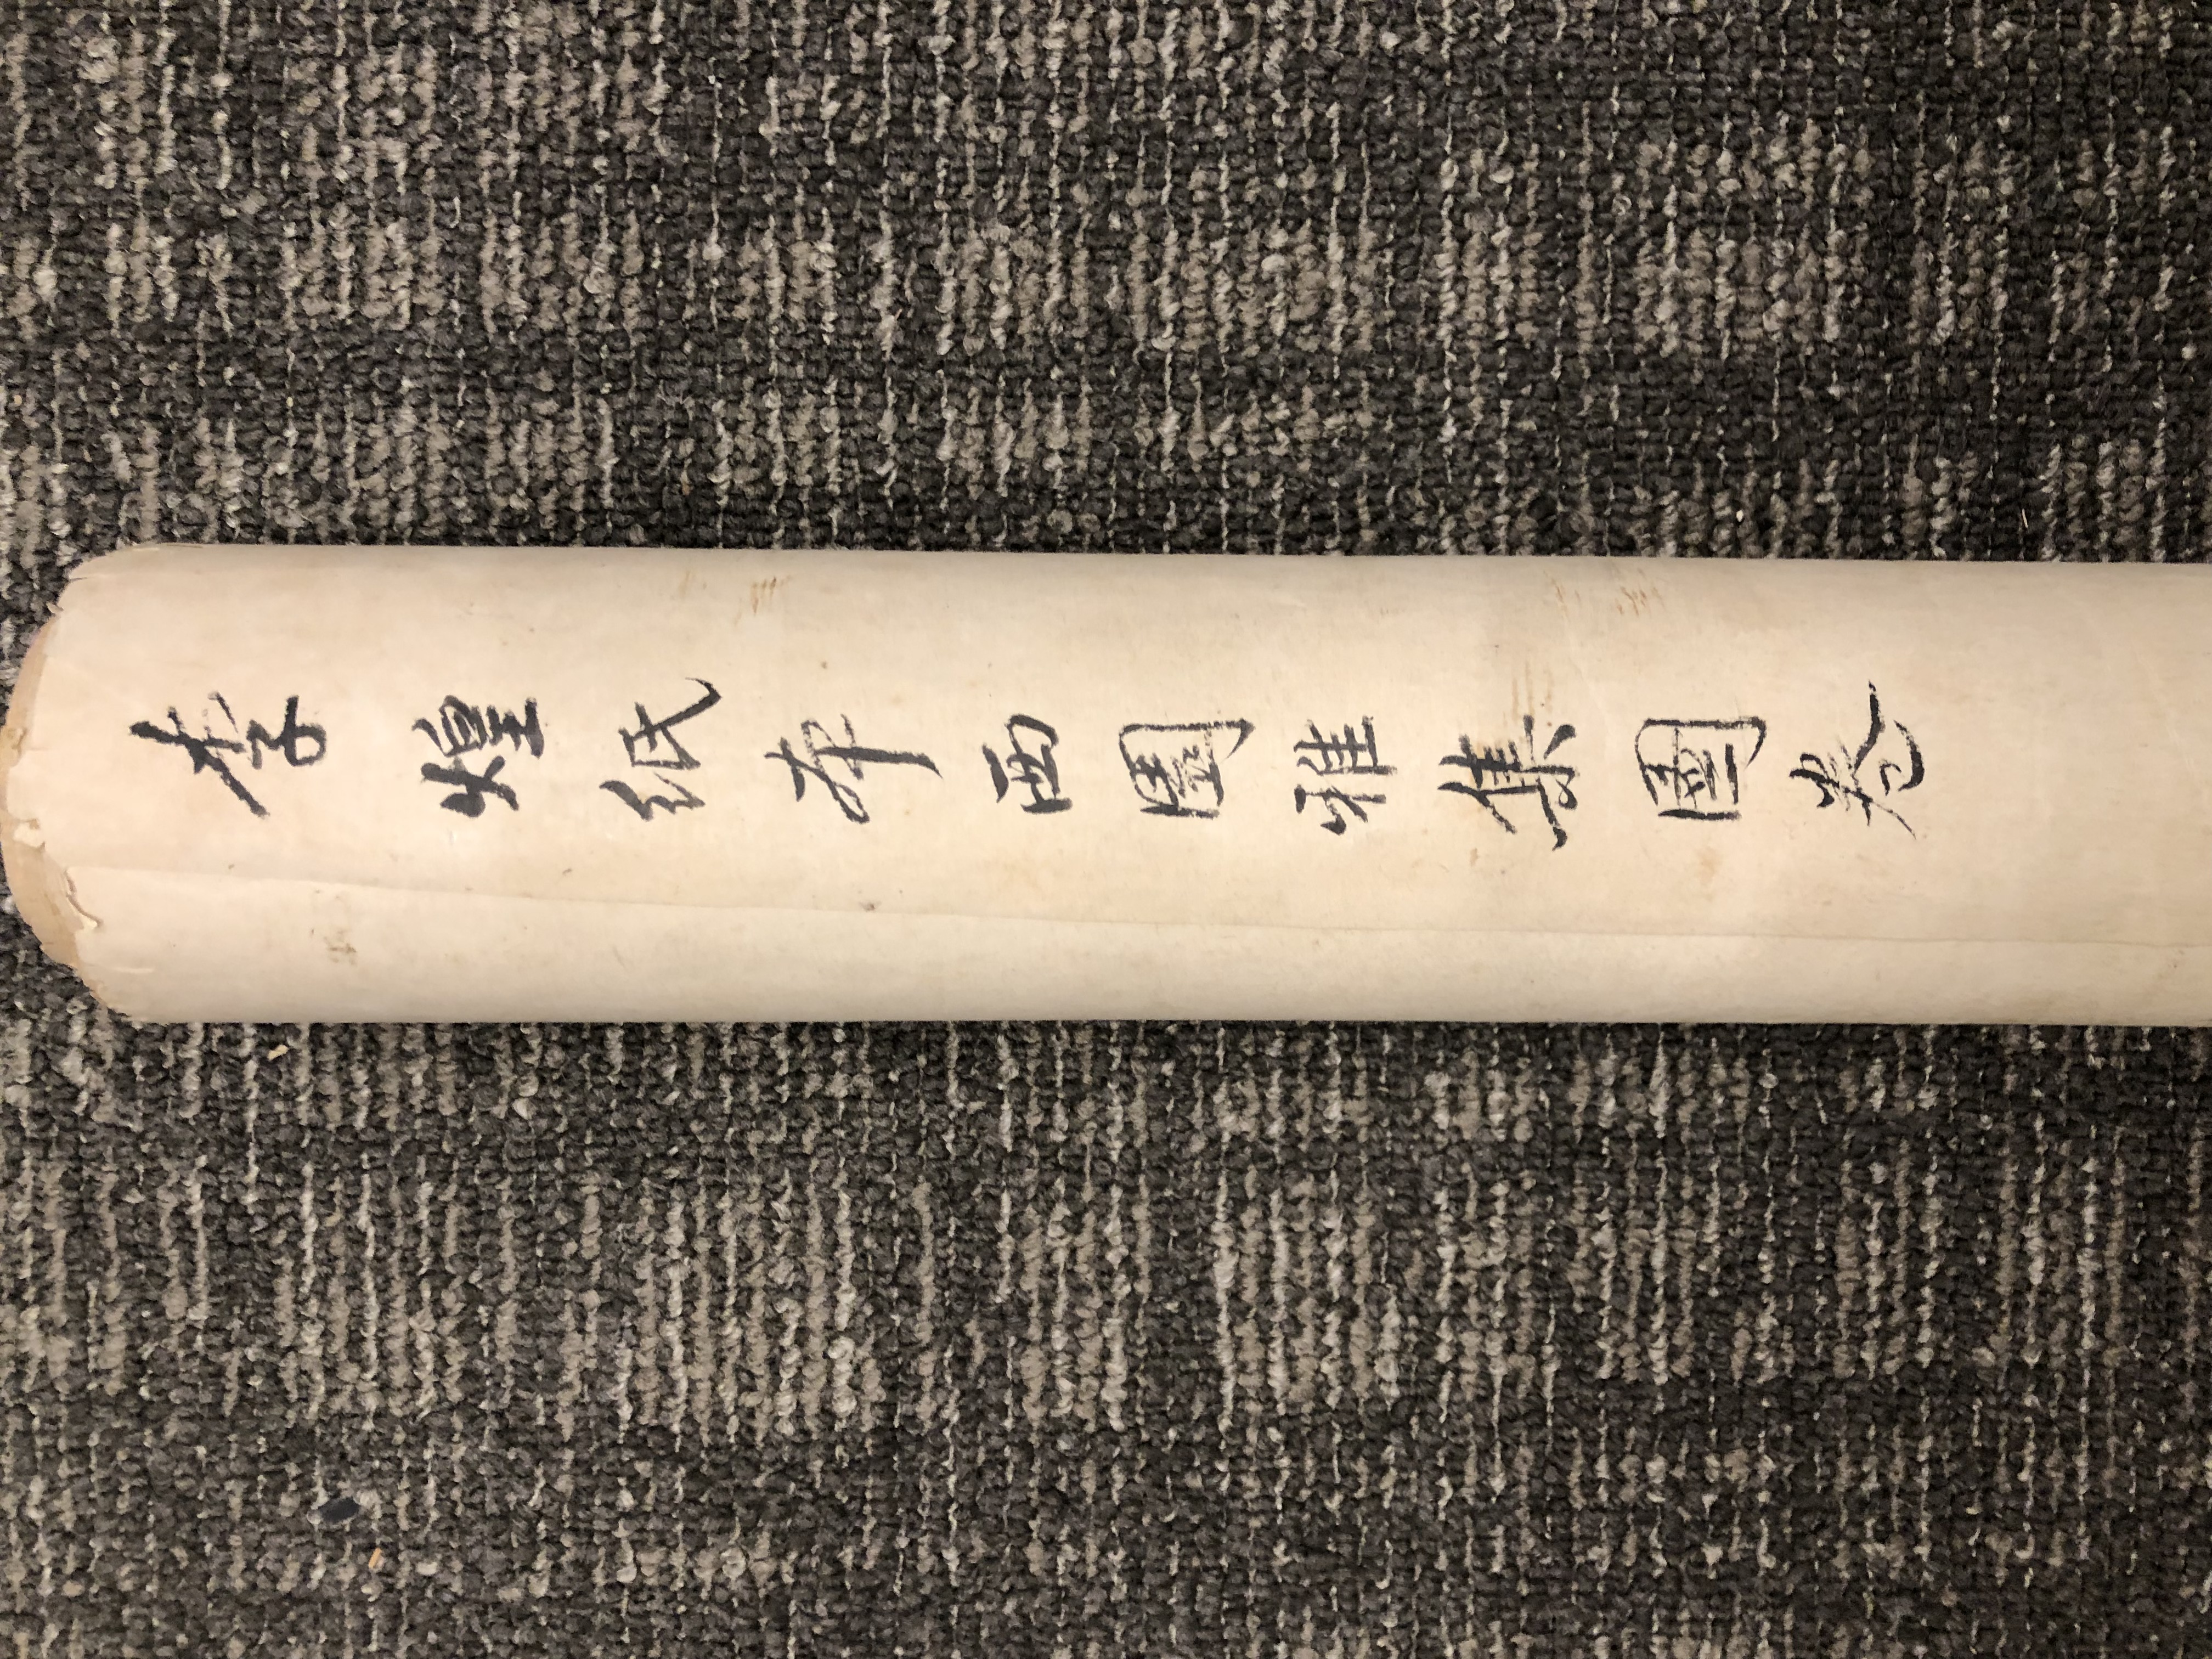 李煌紙本西園雅集圖卷